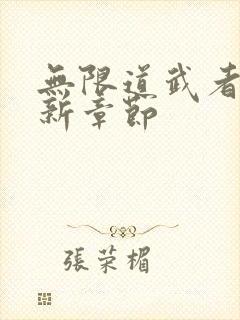 無限道武者
新章節
張荣楣